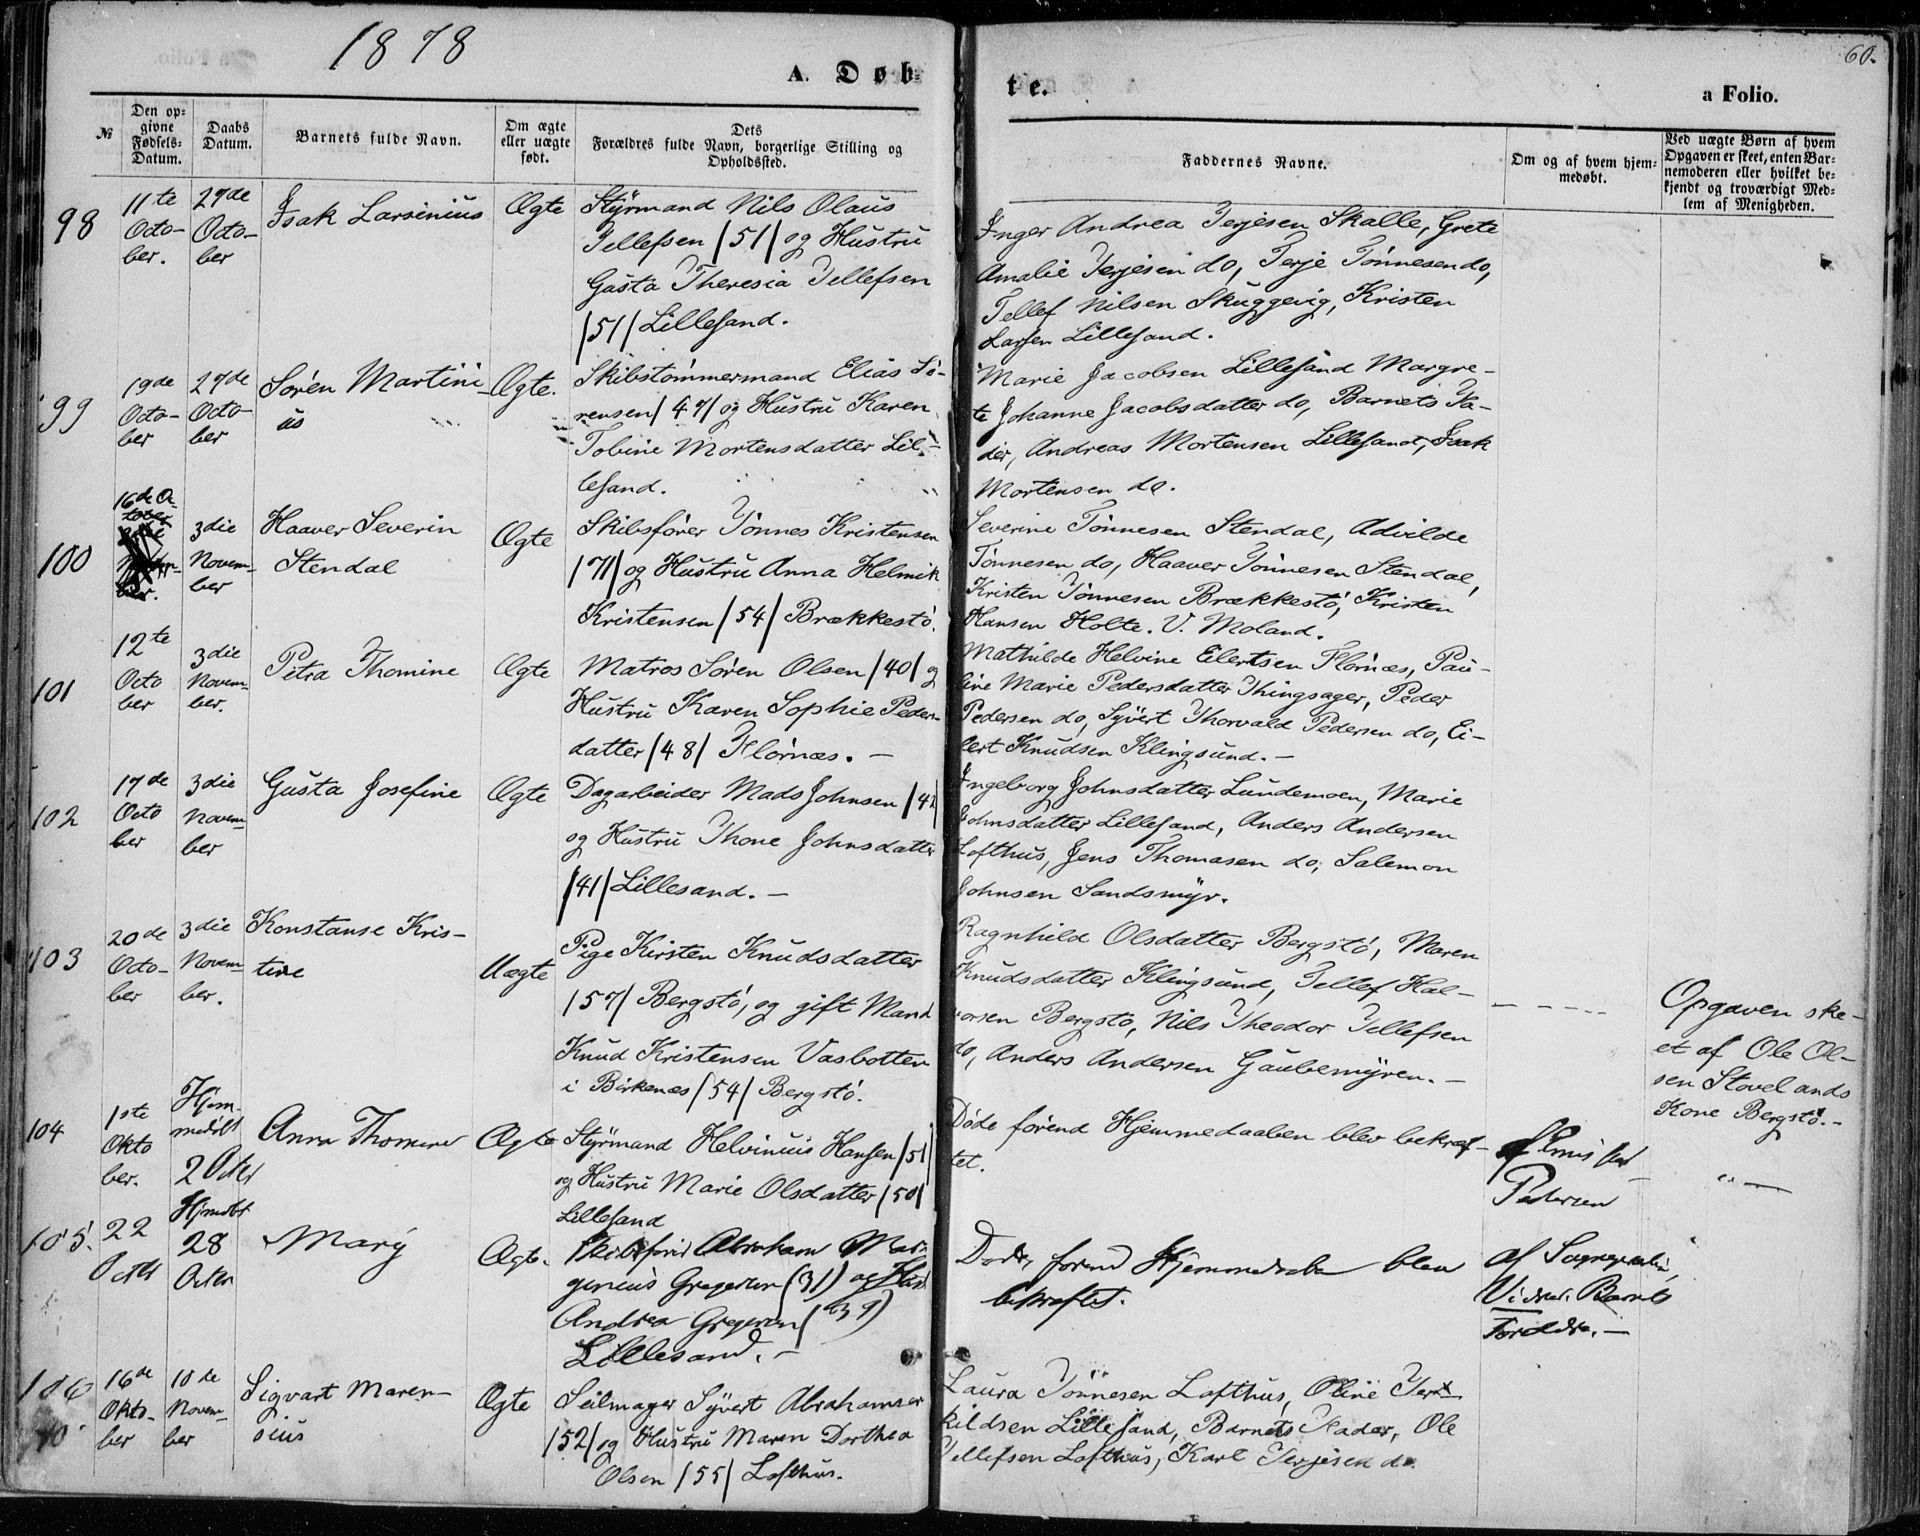 1878
60.
A. Døb-
te.
a Folio.
№
Den op-
givne
Fødsels-
Datum.
Daabs
Datum.
Barnets fulde Navn.
Om ægte
eller uægte
født.
Dets
Forældres fulde Navn, borgerlige Stilling og
Opholdssted.
Faddernes Navne.
Om og af hvem hjem-
medøbt.
Ved uægte Børn af hvem
Opgaven er skeet, enten Bar-
nemoderen eller hvilket be-
kjendt og troværdigt Med-
lem af Menigheden.
98
11te
Octo-
ber.
27de
Octo-
ber
Isak Larsinius
Ægte
Styrmand Nils Olaus
Tellefsen /51/ og Hustru
Gusta Theresia Tellefsen
/51/ Lillesand.
Inger Andrea Terjesen Skalle, Grete
Amalie Terjesen do, Terje Tönnesen do,
Tellef Nilsen Skuggevig, Kristen
Larsen Lillesand.
99
19de
Octo-
ber
27de
Octo-
ber
Sören Martini-
us
Ægte.
Skibstömmermand Elias Sö-
rensen /47/ og Hustru Karen
Tobine Mortensdatter Lil-
lesand.
Marie Jacobsen Lillesand Margre-
te Johanne Jacobsdatter do, Barnets Fa-
der, Andreas Mortensen Lillesand, Isak
Mortensen do.
100
16de Oc
tober
3die
Novem-
ber
Haaver Severin
Stendal
Ægte
Skibsförer Tönnes Kristensen
/71/ og Hustru Anna Helmik
Kristensen /54/ Brækkestö.
Severine Tönnesen Stendal, Advilde
Tönnesen do, Haaver Tönnesen Stendal,
Kristen Tönnesen Brækkestö, Kristen
Hansen Holte. V. Moland.
101
12te
Octo
ber
3die
Novem-
ber.
Petra Thomine
Ægte
Matros Sören Olsen /40/ og
Hustru Karen Sophie Peders-
datter /48/ Flörnæs. -
Mathilde Helvine Eilertsen Flörnæs, Pau-
line Marie Pedersdatter Thingsager, Peder
Pedersen do, Syvert Thorvald Pedersen do, Ei-
lert Knudsen Klingsund. -
102
17de
Octo
ber
3die
Novem-
ber
Gusta Josefine
Ægte
Dagarbeider Mads Johnsen /42
og Hustru Thone Johnsdatter
/41/ Lillesand. -
Ingeborg Johnsdatter Lundemoen, Marie
Johnsdatter Lillesand, Anders Andersen
Lofthus, Jens Thomasen do, Salemon
Johnsen Sandsmyr.
103
20de
Octo-
ber
3die
Novem-
ber.
Konstanse Kris-
tine
Uægte
Pige Kirsten Knudsdatter
/57/ Bergstö, og gift Mand
Knud Kristensen Vasbotten
i Birkenæs /54/ Bergstö.
Ragnhild Olsdatter Bergstö, Maren
Knudsdatter Klingsund, Tellef Hal-
vorsen Bergstö, Nils Theodor Tellefsen
do, Anders Andersen Gaubemyren. -
Opgaven ske-
et af Ole Ol-
sen Stovelands
Kone Bergstö. -
104
1ste
Okto
ber.
Hjem-
medöbt
2 Octbr
Anna Thomine
Ægte
Styrmand Helvinius Hansen /51
og Hustru Marie Olsdatter /50/
Lillesand
Døde förend Hjemmedaaben blev bekræf-
tet.
af
Pedersen
105.
22
Octbr
Hjmdbt
28
Octbr
Mary
Ægte.
Skibsförer Abraham
Gregersen (31) og Hust
Andrea Gregersen (39)
Lillesand. -
Døde, förend Hjemmedaaben blev
bekræftet.
af Sognepræsten
Vidner. Barnets
Forældre. -
106
16de
Okto-
ber
10de
Novem-
ber
Sigvart Maren-
sius
Ægte
Seilmager Syvert Abrahamsen
/52/ og Hustru Maren Dorthea
Olsen /55/ Lofthus.
Laura Tönnesen Lofthus, Oline Ters-
kildsen Lillesand, Barnets Fader, Ole
Tellefsen Lofthus, Karl Terjesen do